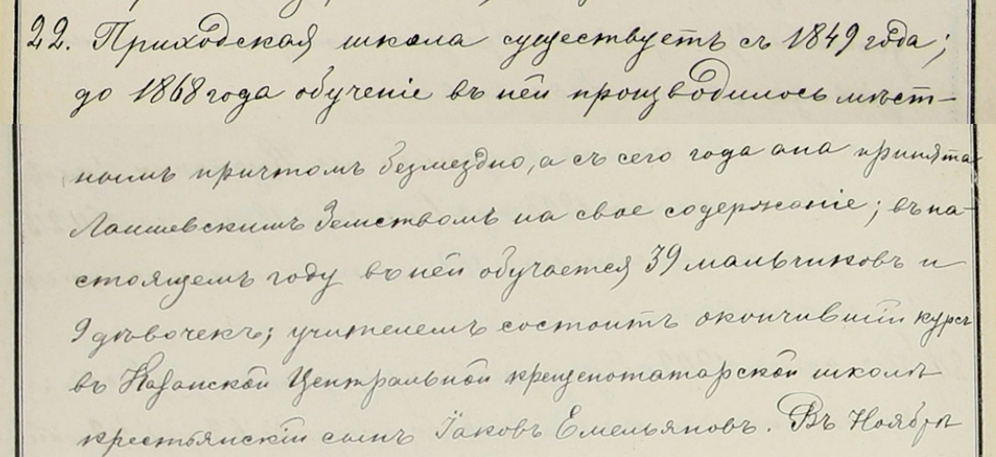 22. Приходская школа существуетъ съ 1849 года;
до 1868 года обученіе въ ней производилось мѣст-
нымъ причтомъ безмездно, а съ сего года она принята
Лаишевскимъ Земствомъ на свое содержаніе; въ на-
стоящемъ году въ ней обучается 39 мальчиковъ и
9 дѣвочекъ; учителемъ состоитъ окончившій курсъ
въ Казанской Центральной крещенотатарской школѣ
крестьянскій сынъ Іаковъ Емельяновъ. Въ Ноябрѣ